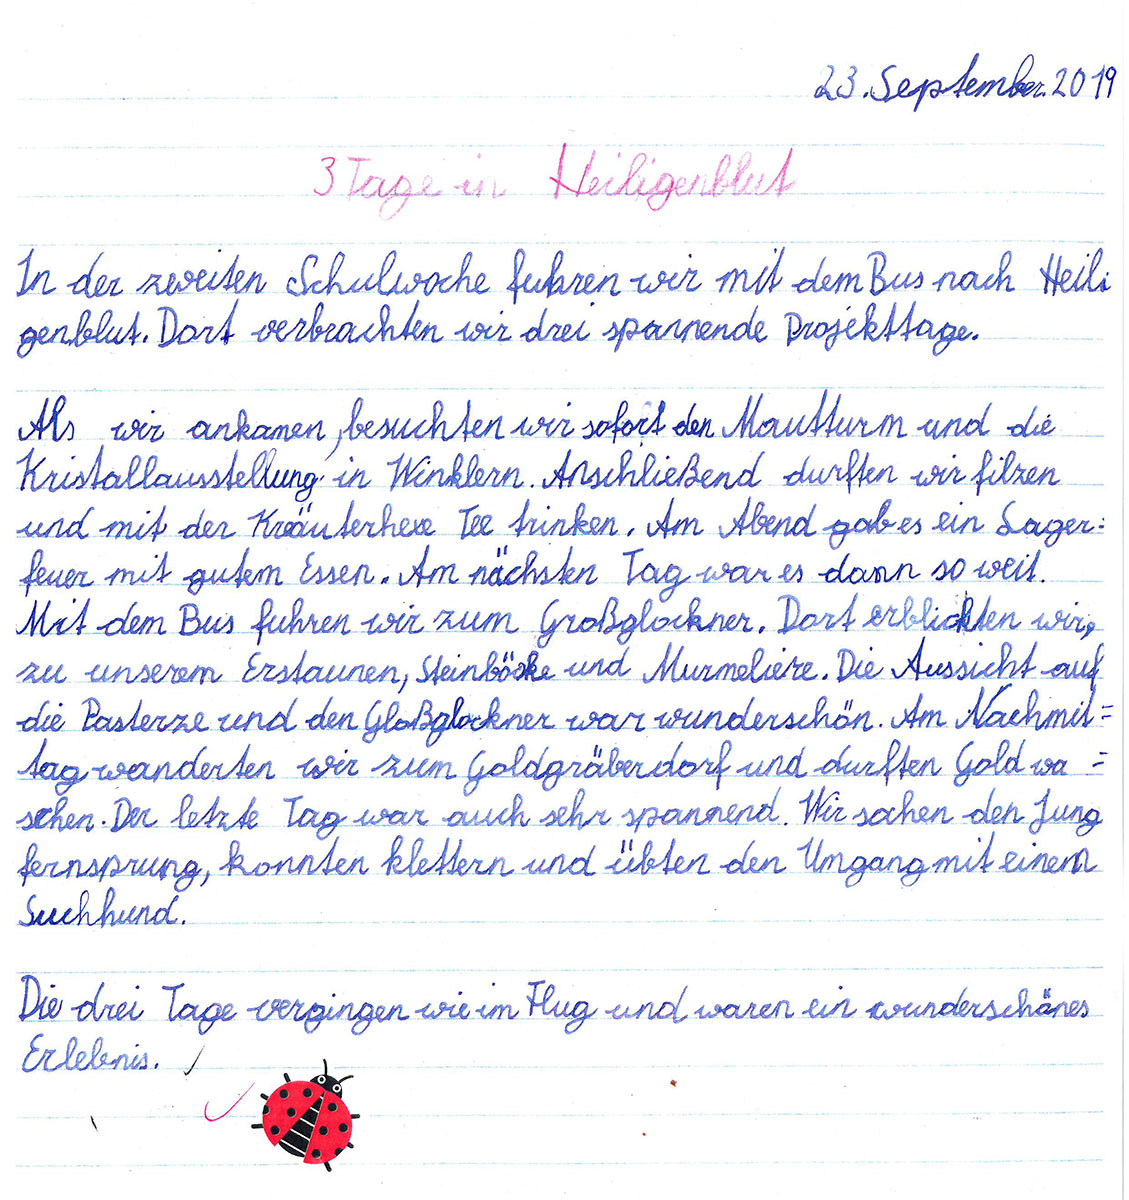 23. September 2019
3 Tage in Heiligenblut
In der zweiten Schulwoche fuhren wir mit dem Bus nach Heili
genblut. Dort verbrachten wir drei spannende Projekttage.
Als wir ankamen, besuchten wir sofort den Mautturm und die
Kristallausstellung in Winklern. Anschließend durften wir filzen
und mit der Kräuterhexe Tee trinken. Am Abend gab es ein Lager=
feuer mit gutem Essen. Am nächsten Tag war es dann so weit.
Mit dem Bus fuhren wir zum Großglockner. Dort erblickten wir,
zu unserem Erstaunen, Steinböcke und Murmeliere. Die Aussicht auf
die Pasterze und den Gloßglockner war wunderschön. Am Nachmit=
tag wanderten wir zum Goldgräberdorf und durften Gold wa=
schen. Der letzte Tag war auch sehr spannend. Wir sahen den Jung
fernsprung, konnten klettern und übten den Umgang mit einem
Suchhund.
Die drei Tage vergingen wie im Flug und waren ein wunderschönes
Erlebnis.